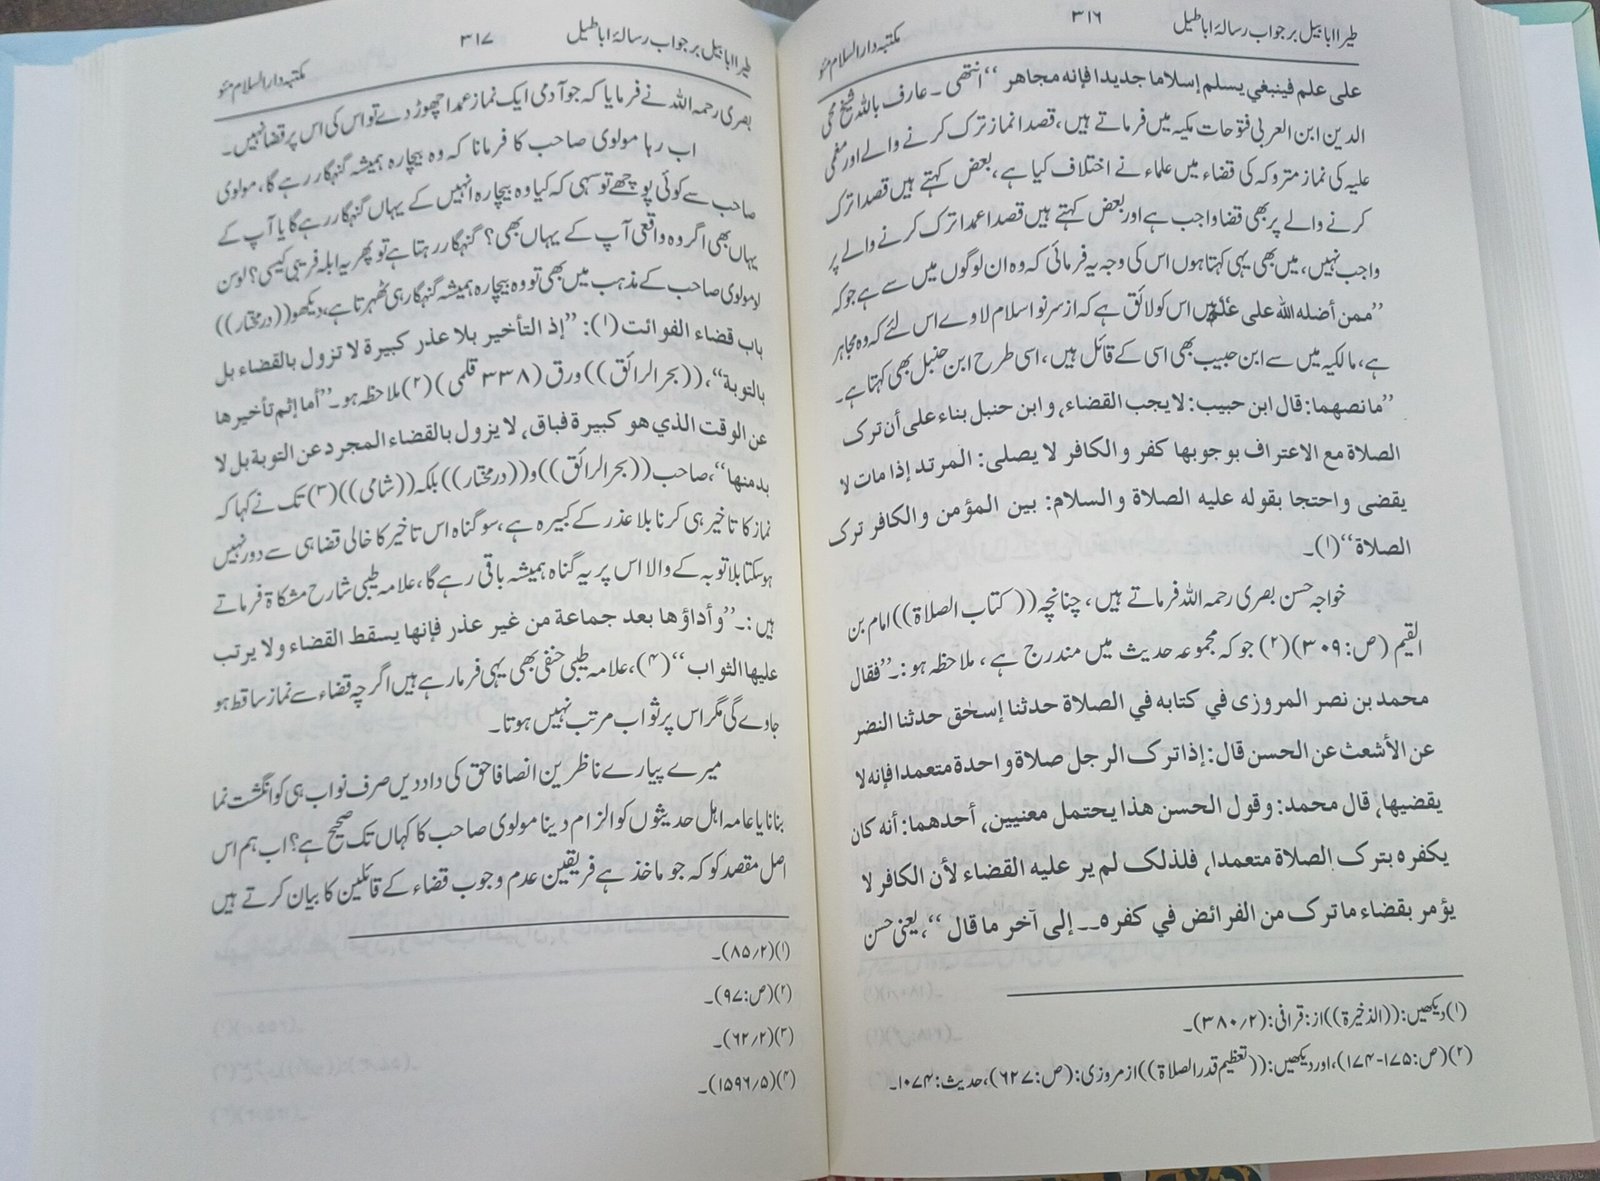 طیرا ابابیل بر جواب رسالۂ اباطیل ۳۱۶ مکتبہ دارالسلام مئو
علی علم فینبغي یسلم إسلاما جدیدا فإنه مجاهر‘‘ انتھی ۔ عارف باللہ شیخ محی
الدین ابن العربی فتوحات مکیہ میں فرماتے ہیں، قصدا نماز ترک کرنے والے اور مغمی
علیہ کی نماز متروکہ کی قضاء میں علماء نے اختلاف کیا ہے، بعض کہتے ہیں قصدا ترک
کرنے والے پر بھی قضا واجب ہے اور بعض کہتے ہیں قصدا عمدا ترک کرنے والے پر
واجب نہیں، میں بھی یہی کہتا ہوں اس کی وجہ یہ فرمائی کہ وہ ان لوگوں میں سے ہے جو کہ
’’ممن أضله الله علی علم ہیں اس کو لائق ہے کہ از سر نو اسلام لاوے اس لئے کہ وہ مجاہر
ہے، مالکیہ میں سے ابن حبیب بھی اسی کے قائل ہیں، اسی طرح ابن حنبل بھی کہتا ہے۔
’’مانصهما: قال ابن حبیب: لا یجب القضاء، و ابن حنبل بناء علی أن ترک
الصلاة مع الاعتراف بوجوبها کفر والکافر لا یصلی: المرتد إذا مات لا
یقضی واحتجا بقوله علیه الصلاة والسلام: بین المؤمن والکافر ترک
الصلاة‘‘(۱)۔
خواجہ حسن بصری رحمہ اللہ فرماتے ہیں، چنانچہ ((کتاب الصلاۃ)) امام بن
القیم (ص:۳۰۹)(۲) جو کہ مجموعہ حدیث میں مندرج ہے، ملاحظہ ہو:۔’’فقال
محمد بن نصر المروزی في کتابه في الصلاة حدثنا إسحٰق حدثنا النضر
عن الأشعث عن الحسن قال: إذا ترک الرجل صلاة واحدة متعمدا فإنه لا
یقضیها، قال محمد: وقول الحسن هذا یحتمل معنیین، أحدهما: أنه کان
یکفره بترک الصلاة متعمدا، فلذلک لم یر علیه القضاء لأن الکافر لا
یؤمر بقضاء ما ترک من الفرائض في کفره۔۔ إلی آخر ما قال‘‘، یعنی حسن
(۱) دیکھیں: ((الذخیرۃ)) از: قرافی: (۲؍۳۸۰)۔
(۲) (ص: ۱۷۵-۱۷۴)، اور دیکھیں: ((تعظیم قدر الصلاۃ)) از مروزی: (ص: ۶۲۷)، حدیث: ۱۰۷۴۔
طیرا ابابیل بر جواب رسالۂ اباطیل ۳۱۷ مکتبہ دارالسلام مئو
بصری رحمہ اللہ نے فرمایا کہ جو آدمی ایک نماز عمدا چھوڑ دے تو اس کی اس پر قضا نہیں۔
اب رہا مولوی صاحب کا فرمانا کہ وہ بیچارہ ہمیشہ گنہگار رہے گا، مولوی
صاحب سے کوئی پوچھے تو سہی کہ کیا وہ بیچارہ انہیں کے یہاں گنہگار رہے گا یا آپ کے
یہاں بھی اگر وہ واقعی آپ کے یہاں بھی؟ گنہگار رہتا ہے تو پھر یہ ابلہ فریبی کیسی؟ لو سن
لو مولوی صاحب کے مذہب میں بھی تو وہ بیچارہ ہمیشہ گنہگار ہی ٹھہرتا ہے، دیکھو ((درمختار))
باب قضاء الفوائت (۱): ’’إذ التأخیر بلا عذر کبیرة لا تزول بالقضاء بل
بالتوبة‘‘، ((بحر الرائق)) ورق (۳۳۸ قلمی) (۲) ملاحظہ ہو۔’’أما إثم تأخیرها
عن الوقت الذي هو کبیرة فباق، لا یزول بالقضاء المجرد عن التوبة بل لا
بد منها‘‘، صاحب ((بحر الرائق)) و ((درمختار)) بلکہ ((شامی)) (۳) تک نے کہا کہ
نماز کا تاخیر ہی کرنا بلا عذر کے کبیرہ ہے، سو گناہ اس تاخیر کا خالی قضا ہی سے دور نہیں
ہو سکتا بلا توبہ کے والا اس پر یہ گناہ ہمیشہ باقی رہے گا، علامہ طیبی شارح مشکاۃ فرماتے
ہیں:۔’’وأداؤها بعد جماعة من غیر عذر فإنها یسقط القضاء ولا یرتب
علیها الثواب‘‘(۴)، علامہ طیبی حنفی بھی یہی فرما رہے ہیں اگرچہ قضاء سے نماز ساقط ہو
جاوے گی مگر اس پر ثواب مرتب نہیں ہوتا۔
میرے پیارے ناظرین انصافا حق کی داد دیں صرف نواب ہی کو انگشت نما
بنانا یا عامہ اہل حدیثوں کو الزام دینا مولوی صاحب کا کہاں تک صحیح ہے؟ اب ہم اس
اصل مقصد کو کہ جو ماخذ ہے فریقین عدم وجوب قضاء کے قائلین کا بیان کرتے ہیں
(۱) (۲؍۸۵)۔
(۲) (ص: ۹۷)۔
(۳) (۲؍۶۲)۔
(۴) (۵؍۱۵۹۶)۔